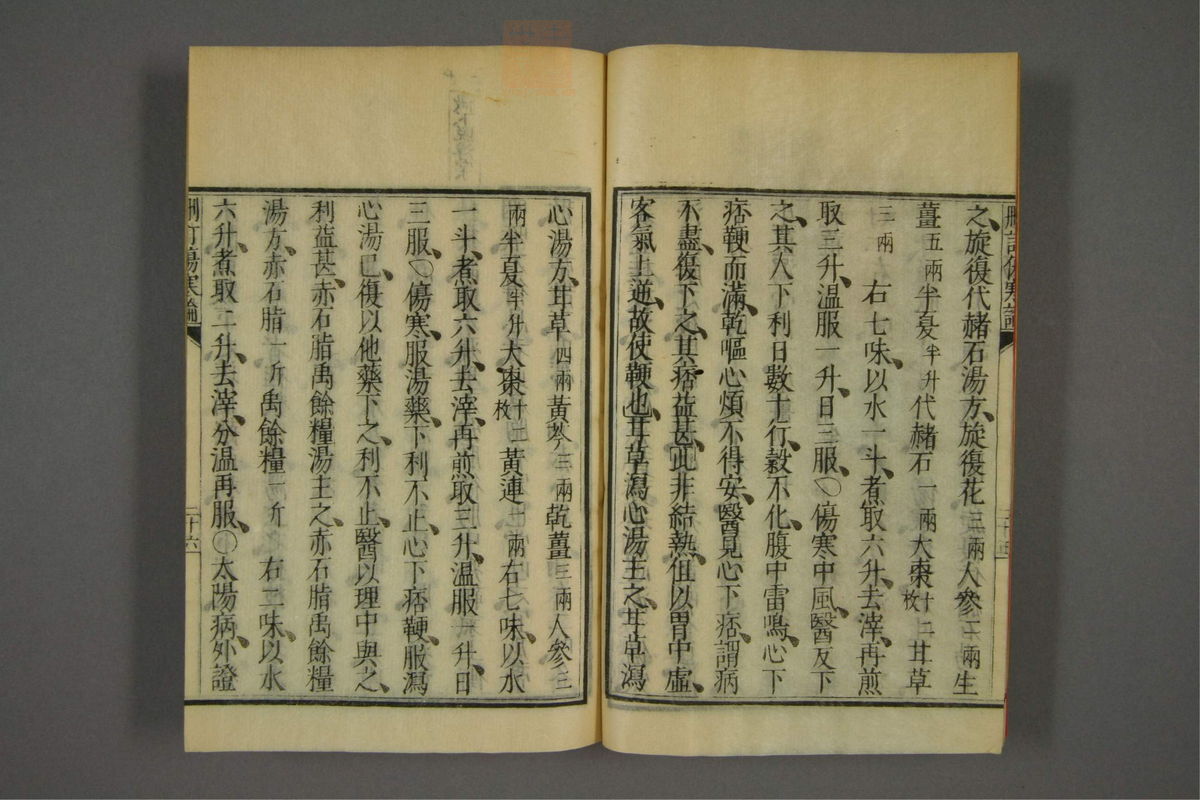 之、旋復代赭石湯方、旋復花三兩人參二兩生
薑五兩半夏半升代赭石一兩大棗十二枚甘草
三兩右七味、以水一斗、煮取六升、去滓、再煎
取三升、溫服一升、日三服、○傷寒中風、醫反下
之、其人下利日數十行、穀不化、腹中雷鳴、心下
痞鞕而滿、乾嘔心煩不得安、醫見心下痞、謂病
不盡、復下之、其痞益甚、此非結熱、但以胃中虛、
客氣上逆、故使鞕也、甘草瀉心湯主之、甘草瀉
心湯方、甘草四兩黃芩三兩乾薑三兩人參三
兩半夏半升大棗十二枚黃連一兩右七味、以水
一斗、煮取六升、去滓、再煎取三升、溫服一升、日
三服、○傷寒、服湯藥、下利不止、心下痞鞕、服瀉
心湯已、復以他藥下之、利不止、醫以理中與之、
利益甚、赤石脂禹餘糧湯主之、赤石脂禹餘糧
湯方、赤石脂一斤禹餘糧一斤右二味、以水
六升、煮取二升、去滓、分溫再服、○太陽病、外證
刪訂傷寒論
二十六